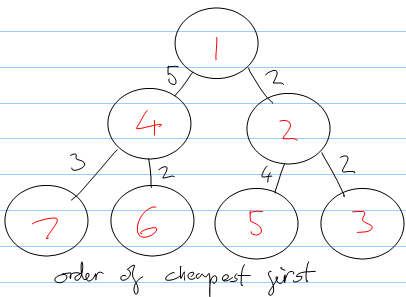 1
5 2
4 2
3 2 4 2
7 6 5 3
order of cheapest first